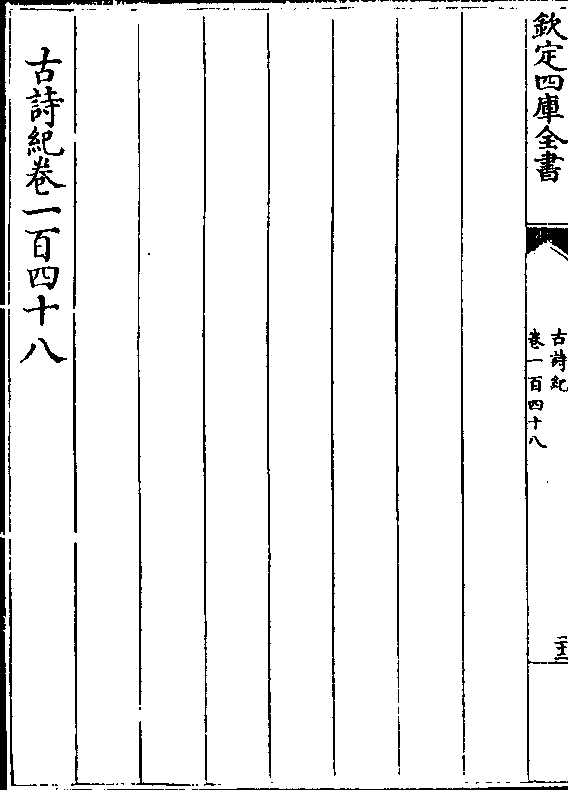 欽定四庫全書
古詩紀
卷一百四十八
古詩紀卷一百四十八